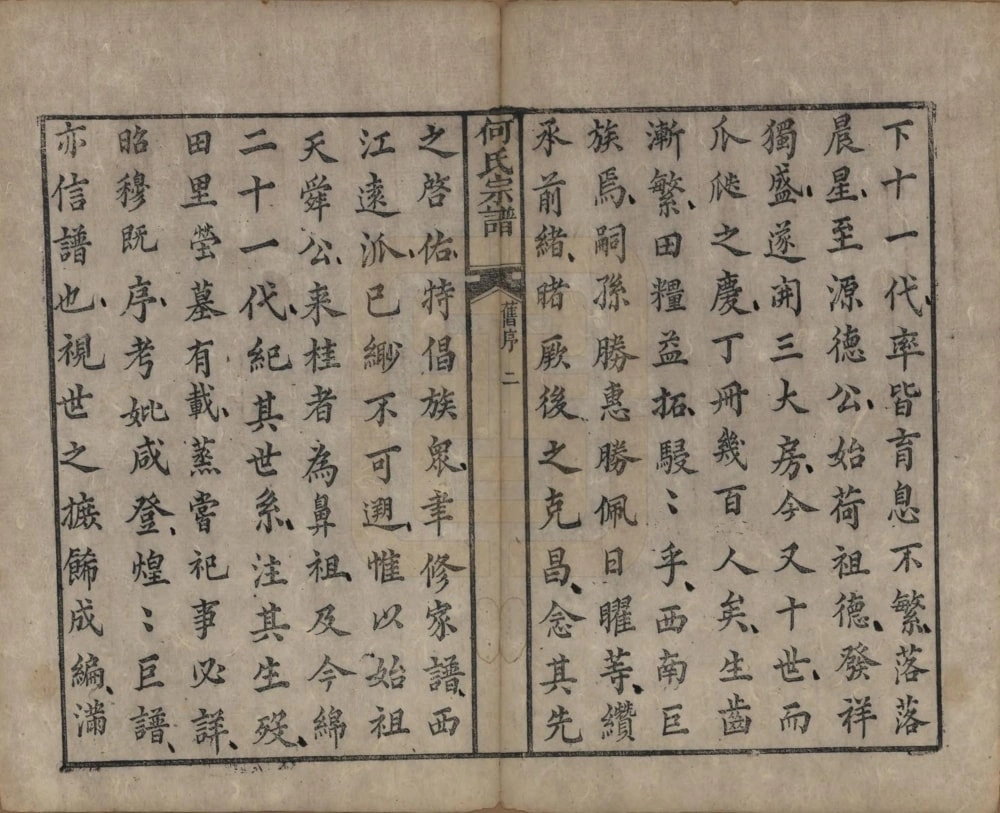 下十一代、率皆育息不繁、落落
晨星、至源德公、始荷祖德、發祥
獨盛、遂開三大房、今又十世、而
瓜瓞之慶、丁冊幾百人矣、生齒
漸繁、田糧益拓、駸〻乎、西南巨
族焉、嗣孫勝惠勝佩日曜等、纘
承前緒、睹厥後之克昌、念其先
何氏宗譜
舊序 二
之啓佑、特倡族衆、聿修家譜、西
江遠派、已緲不可遡、惟以始祖
天舜公、来桂者為鼻祖、及今綿
二十一代、紀其世系、注其生殁、
田里塋墓有載、蒸嘗祀事必詳、
昭穆既序、考妣咸登、煌〻巨譜、
亦信譜也、視世之摭飾成編、滿